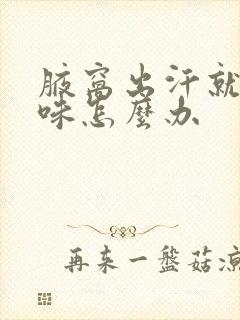 腋窩出汗就
味怎麼办
再来一盤菇凉